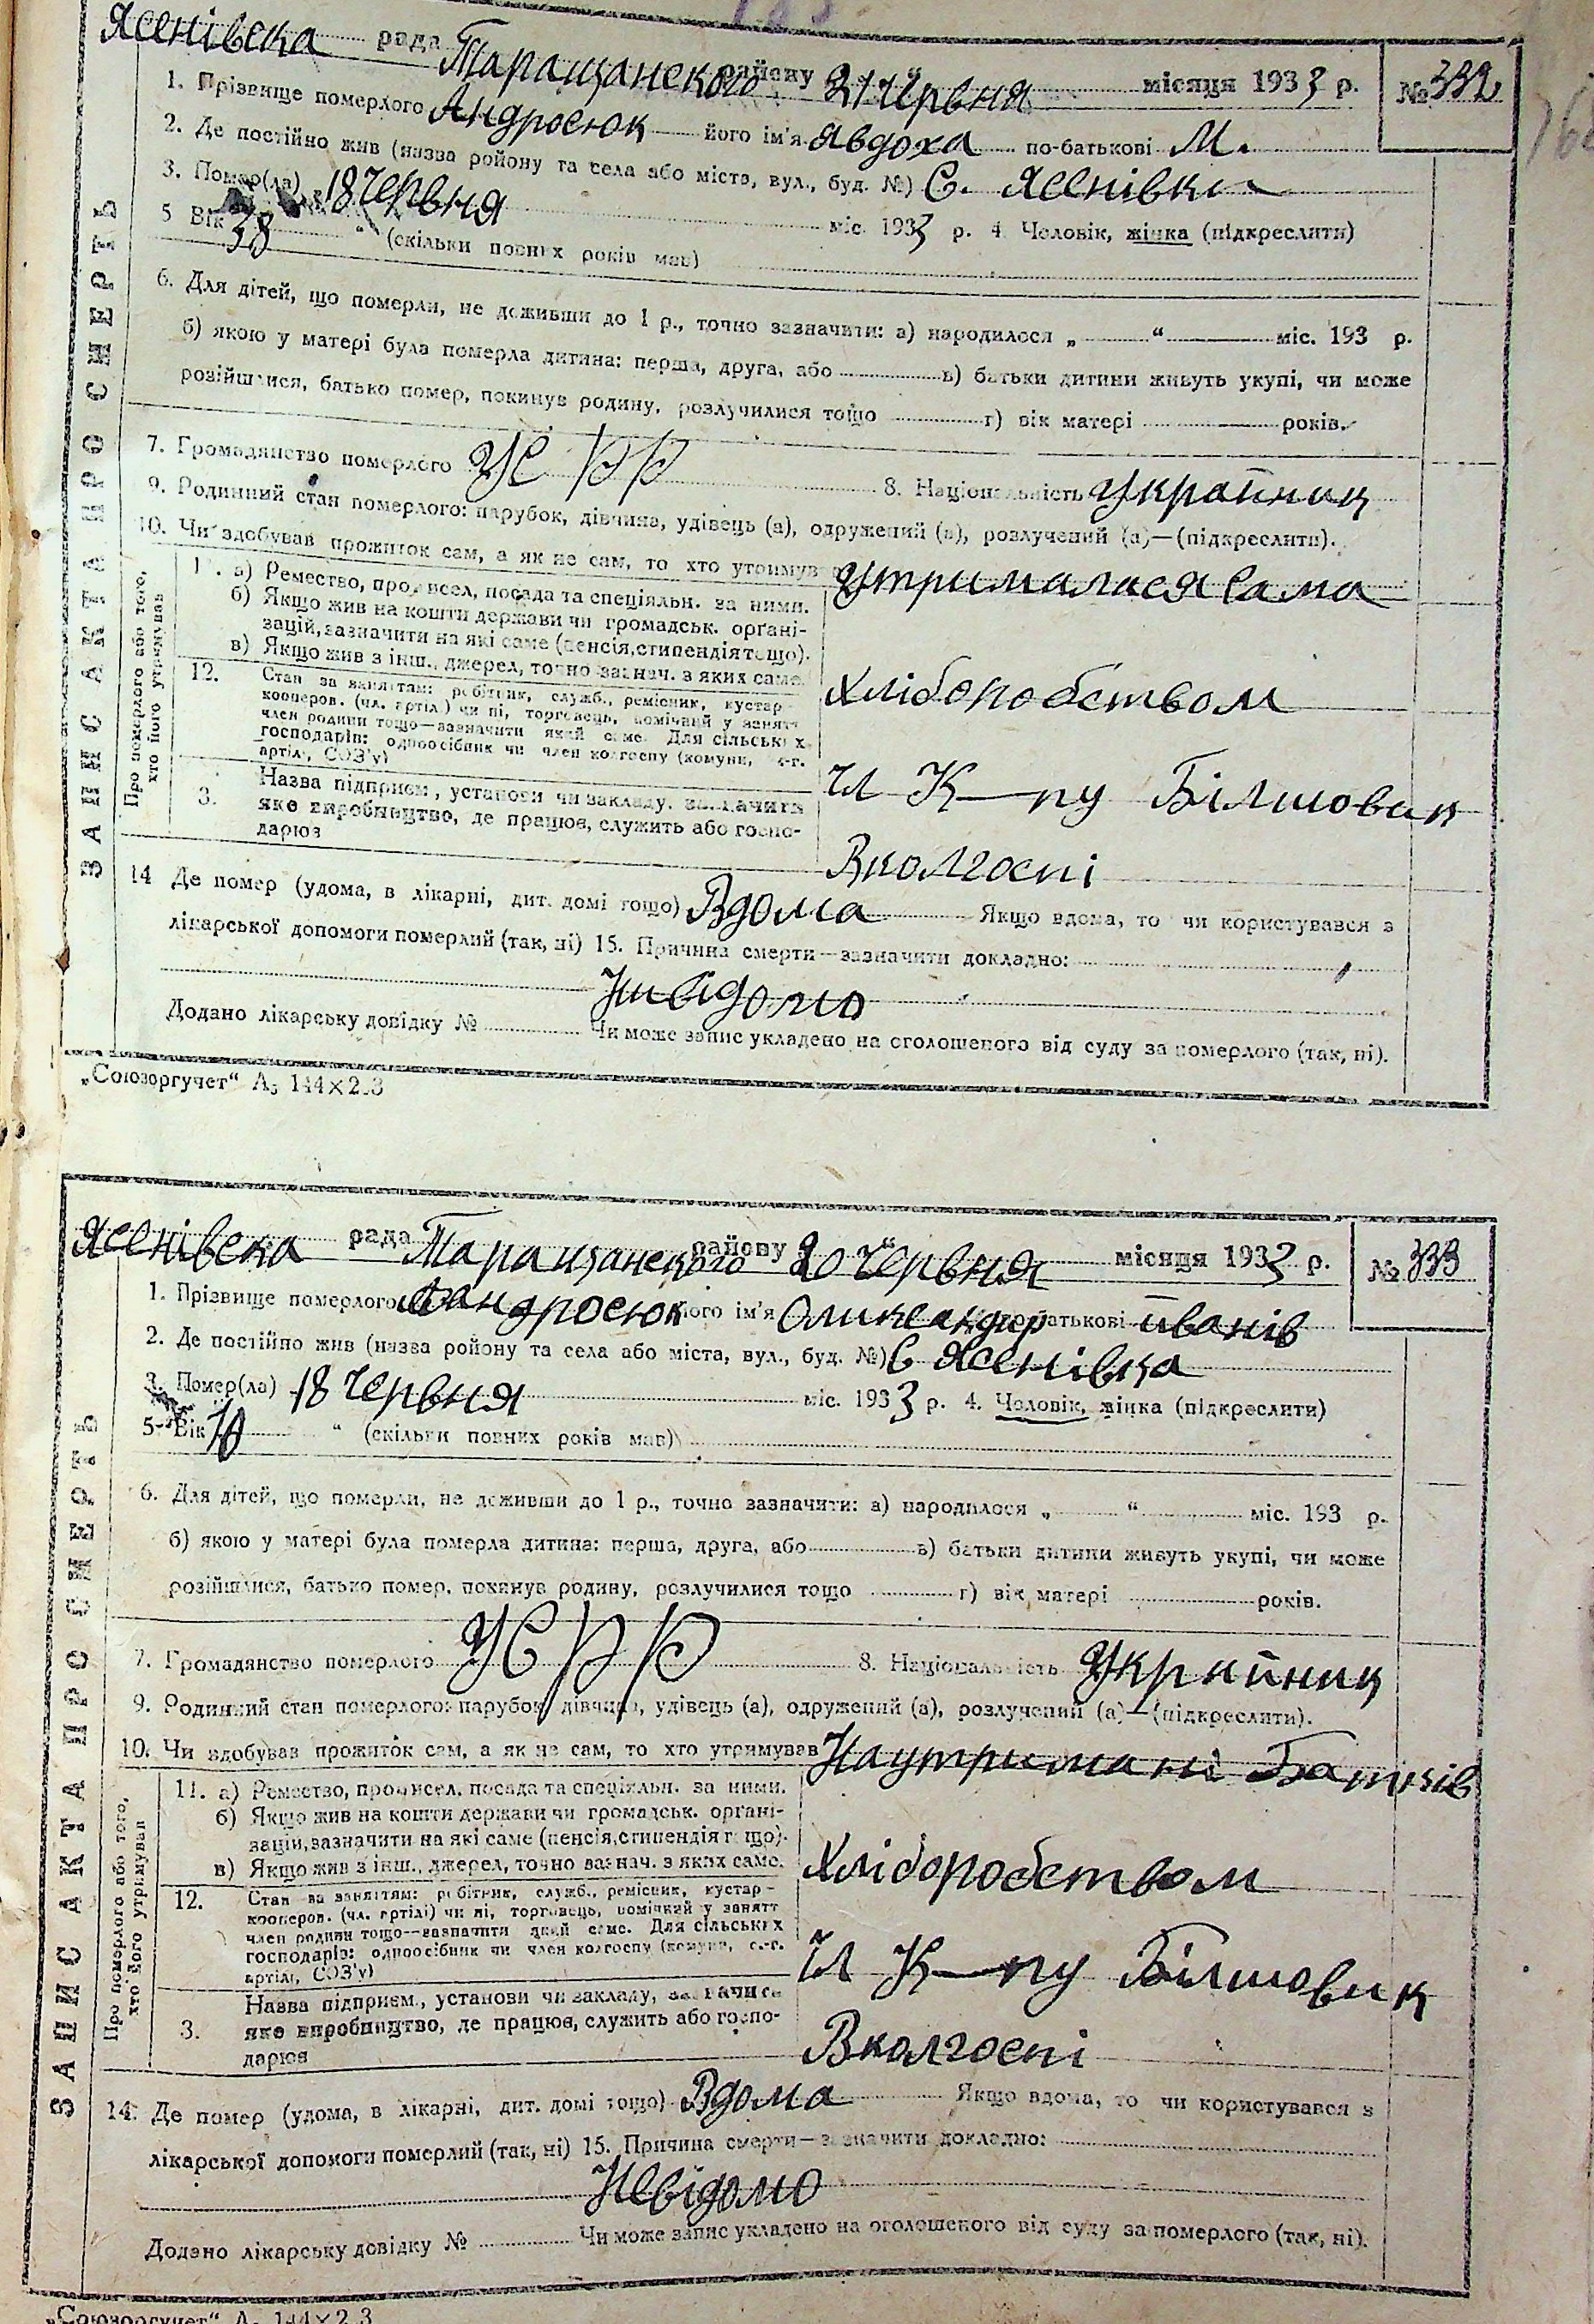 Ясенівска рада Таращанского району 21 Червня місяця 1933 р. № 332
1. Прізвище померлого Андросюк його ім'я Явдоха по-батькові М.
2. Де постійно жив (назва району та села або міста, вул., буд. №) С. Ясенівки
3. Помер(ла) 18 Червня міс. 1933 р. 4. Чоловік, жінка (підкреслити)
5 Вік 38 " (скільки повних років мав)
6. Для дітей, що померли, не доживши до 1 р., точно зазначити: а) народилося „ “ міс. 193 р.
б) якою у матері була померла дитина: перша, друга, або в) батьки дитини живуть укупі, чи може
розійшлися, батько помер, покинув родину, розлучилися тощо г) вік матері років.
7. Громадянство померлого УСРР 8. Національність Україниц
9. Родинний стан померлого: парубок, дівчина, удівець (а), одружений (а), розлучений (а)—(підкреслити).
10. Чи здобував прожиток сам, а як не сам, то хто утримував Утрималася Сама
Про померлого або того, хто його утримував
11. а) Ремество, промисел, посада та спеціяльн. за ними.
б) Якщо жив на кошти держави чи громадськ. органі-
зацій, зазначити на які саме (пенсія, стипендія тощо).
в) Якщо жив з інш., джерел, точно зазнач. з яких саме.
Хліборобством
12. Стан за заняттям: робітник, служб., ремісник, кустар
кооперов. (чл. артілі) чи ні, торговець, помічний у занятт
член родини тощо—зазначити який саме. Для сільських
господарів: одноосібник чи член колгоспу (комуни, с-г.
артілі, СОЗ'у)
Чл К—пу Білшовик
3. Назва підприєм., установи чи закладу, зазначити
яке виробництво, де працює, служить або госпо-
дарює
Вколгоспі
14 Де помер (удома, в лікарні, дит. домі тощо) Вдома Якщо вдома, то чи користувався з
лікарської допомоги померлий (так, ні) 15. Причина смерти—зазначити докладно:
Нивідомо
Додано лікарську довідку № Чи може запис укладено на оголошеного від суду за померлого (так, ні).
ЗАПИС АКТА ПРО СМЕРТЬ
„Союзоргучет“
Ясенівска рада Таращанского району 20 Червня місяця 1933 р. № 333
1. Прізвище померлого Андросюк його ім'я Оликсандир по-батькові Иванів
2. Де постійно жив (назва району та села або міста, вул., буд. №) С Ясенівка
3. Помер(ла) 18 Червня міс. 1933 р. 4. Чоловік, жінка (підкреслити)
5 Вік 10 " (скільки повних років мав)
6. Для дітей, що померли, не доживши до 1 р., точно зазначити: а) народилося „ “ міс. 193 р.
б) якою у матері була померла дитина: перша, друга, або в) батьки дитини живуть укупі, чи може
розійшлися, батько помер, покинув родину, розлучилися тощо г) вік матері років.
7. Громадянство померлого УСРР 8. Національність Україниц
9. Родинний стан померлого: парубок, дівчина, удівець (а), одружений (а), розлучений (а)—(підкреслити).
10. Чи здобував прожиток сам, а як не сам, то хто утримував Наутримані Батьків
Про померлого або того, хто його утримував
11. а) Ремество, промисел, посада та спеціяльн. за ними.
б) Якщо жив на кошти держави чи громадськ. органі-
зацій, зазначити на які саме (пенсія, стипендія тощо).
в) Якщо жив з інш., джерел, точно зазнач. з яких саме.
Хліборобством
12. Стан за заняттям: робітник, служб., ремісник, кустар-
кооперов. (чл. артілі) чи ні, торговець, помічний у занятт
член родини тощо—зазначити який саме. Для сільських
господарів: одноосібник чи член колгоспу (комуни, с.-г.
артілі, СОЗ'у)
Чл К—пу Білшовик
3. Назва підприєм., установи чи закладу, зазначити
яке виробництво, де працює, служить або госпо-
дарює
Вколгоспі
14. Де помер (удома, в лікарні, дит. домі тощо) Вдома Якщо вдома, то чи користувався з
лікарської допомоги померлий (так, ні) 15. Причина смерти—зазначити докладно:
Невідомо
Додано лікарську довідку № Чи може запис укладено на оголошеного від суду за померлого (так, ні).
ЗАПИС АКТА ПРО СМЕРТЬ
„Союзоргучет“